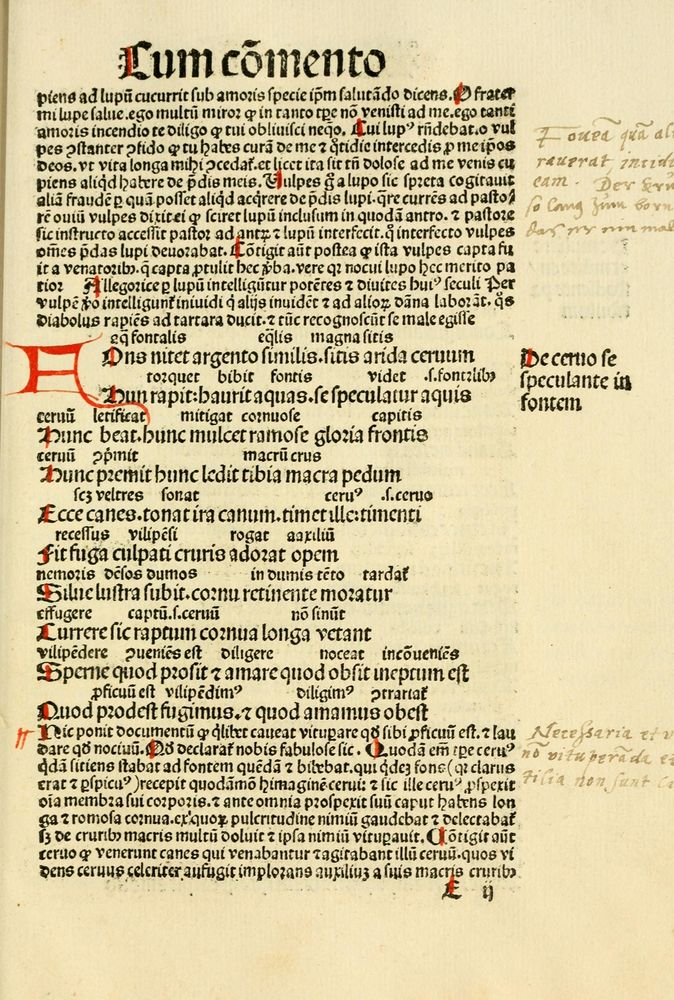 Cum cōmento
piens ad lupū cucurrit sub amoris specie ip̄m salutādo dicens. O frater
mi lupe salue. ego multū miror ꝙ in tanto tꝑe nō venisti ad me. ego tanti
amoris incendio te diligo ꝙ tui obliuisci neq̄o. Cui lup⁹ rn̄debat. o vul
pes ꝯstanter ꝯfido ꝙ tu habes curā de me ⁊ q̄tidie intercedis ꝓ me ip̄os
deos. vt vita longa mihi ꝯcedat᷑. et licet ita sit tn̄ dolose ad me venis cu
piens aliqd habere de p̄dis meis. Vulpes g̊ a lupo sic spreta cogitauit
aliā fraudē ꝑ quā posset aliqd acq̄rere de p̄dis lupi. q̄re currēs ad pasto⸗
rē ouiū vulpes dixit ei ꝙ sciret lupū inclusum in quodā antro. ⁊ pastore
sic instructo accessit pastor ad antꝝ ⁊ lupū interfecit. q̊ interfecto vulpes
om̄es p̄das lupi deuorabat. Cōtigit aūt postea ꝙ ista vulpes capta fu
it a venatoribꝫ. q̄ capta ꝓtulit hec v̄ba. vere qꝛ nocui lupo hec merito pa
tior Allegorice ꝑ lupū intelligūtur potētes ⁊ diuites hui⁹ seculi Per
vulpē v̊o intelligunt᷑ inuidi q̇ alijs inuidēt ⁊ ad alioꝝ dāna laborāt. q̊s
diabolus rapiēs ad tartara ducit. ⁊ tūc recognoscūt se male egisse
aq̄ fontalis eq̄lis magna sitis
FOns nitet argento similis. sitis arida ceruum
torquet bibit fontis videt .s. fontꝭlibꝫ
Hun rapit: haurit aquas. se speculatur aquis
De ceruo se
speculante in
fontem
ceruū letificat mitigat cornuose capitis
Hunc beat. hunc mulcet ramose gloria frontis
ceruū ꝯp̄mit macrū crus
Hunc premit hunc ledit tibia macra pedum
scꝫ veltres sonat ceru⁹ .s. ceruo
Ecce canes. tonat ira canum. timet ille: timenti
recessus vilipēsi rogat auxiliū
Fit fuga culpati cruris adorat opem
nemoris dēsos dumos in dumis tēto tardat᷑
Silue lustra subit. cornu retinente moratur
effugere captū .s. ceruū nō sinūt
Currere sic raptum cornua longa vetant
vilipēdere ꝯueniēs est diligere noceat incōueniēs
Sperne quod prosit ⁊ amare quod obsit ineptum est
ꝓficuū est vilipēdim⁹ diligim⁹ ꝯtrariat᷑
Quod prodest fugimus. ⁊ quod amamus obest
Hic ponit documētū ꝙ q̄libet caueat vituꝑare qd̄ sibi ꝓficuū est. ⁊ lau
dare qd̄ nociuū. Qd̄ declarat᷑ nobis fabulose sic. Quodā em̄ tꝑe ceru⁹
q̇dam sitiens stabat ad fontem quēdā ⁊ bibebat. qui q̇deꝫ fons (qꝛ clarus
erat ⁊ ꝑspicu⁹) recepit quodāmō himaginē cerui: ⁊ sic ille ceru⁹ ꝓspexit
oīa membra sui corporis. ⁊ ante omnia prospexit suū caput habens lon
ga ⁊ ramosa cornua. ex quoꝝ pulcritudine nimiū gaudebat ⁊ delectabat᷑
sꝫ de cruribꝫ macris multū doluit ⁊ ipsa nimiū vituꝑauit. Cōtigit aūt
ceruo ꝙ venerunt canes qui venabantur ⁊ agitabant illū ceruū. quos vi
dens ceruus celeriter aufugit implorans auxiliuꝫ a suis macris cruribꝫ
E ij
Fouea quā al
rauerat intidi
eam. Der
so lang zum
das er
Necessaria et v
nō vituperāda et
tilia non sunt